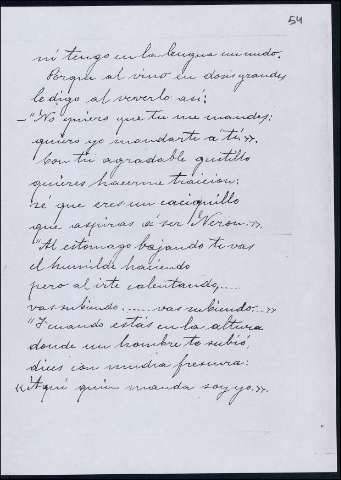 54
ni tengo en la lengua un nudo.
Porque al vino en dosis grandes
le digo al verlo así:
— "No quiero que tu me mandes;
quiero yo mandarte á tí.»
Con tu agradable gustillo
quieres hacerme traicion;
sé que eres un caciquillo
que aspiras á ser Neron.»
"Al estomago bajando te vas
el humilde haciendo
pero al irte calentando.....
vas subiendo.......vas subiendo...»
"Y cuando estás en la altura
donde un hombre te subió,
dices con mucha frescura:
«Aquí quien manda soy yo.»